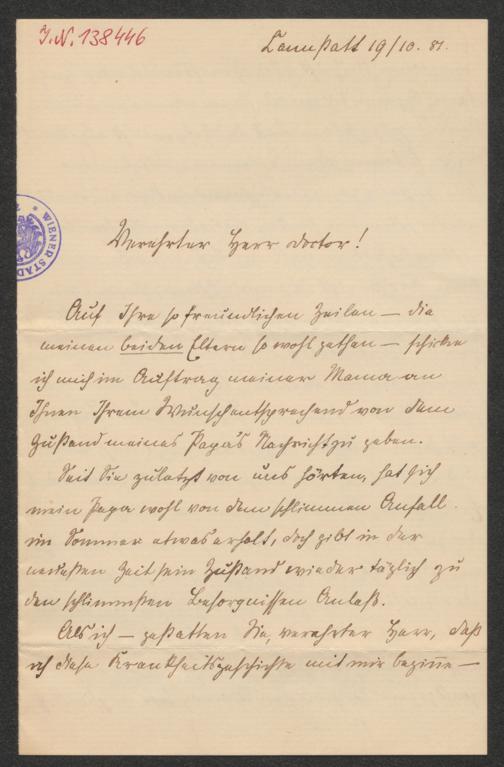 J.N. 138446
Cannstatt 19/10. 81.
WIENER STAD
Verehrter Herr Doctor!
Auf Ihre so freundlichen Zeilen — die
meinen beiden Eltern so wohl gethan — schicke
ich mich im Auftrag meiner Mama an
Ihnen Ihrem Wunsch entsprechend von dem
Zustand meines Papa's Nachricht zu geben.
Seit Sie zuletzt von uns hörten, hat sich
mein Papa wohl von dem schlimmen Anfall
im Sommer etwas erholt, doch gibt in der
neuesten Zeit sein Zustand wieder täglich zu
den schlimmsten Besorgnissen Anlaß.
Als ich — gestatten Sie, verehrter Herr, daß
ich diese Krankheitsgeschichte mit mir beginne —